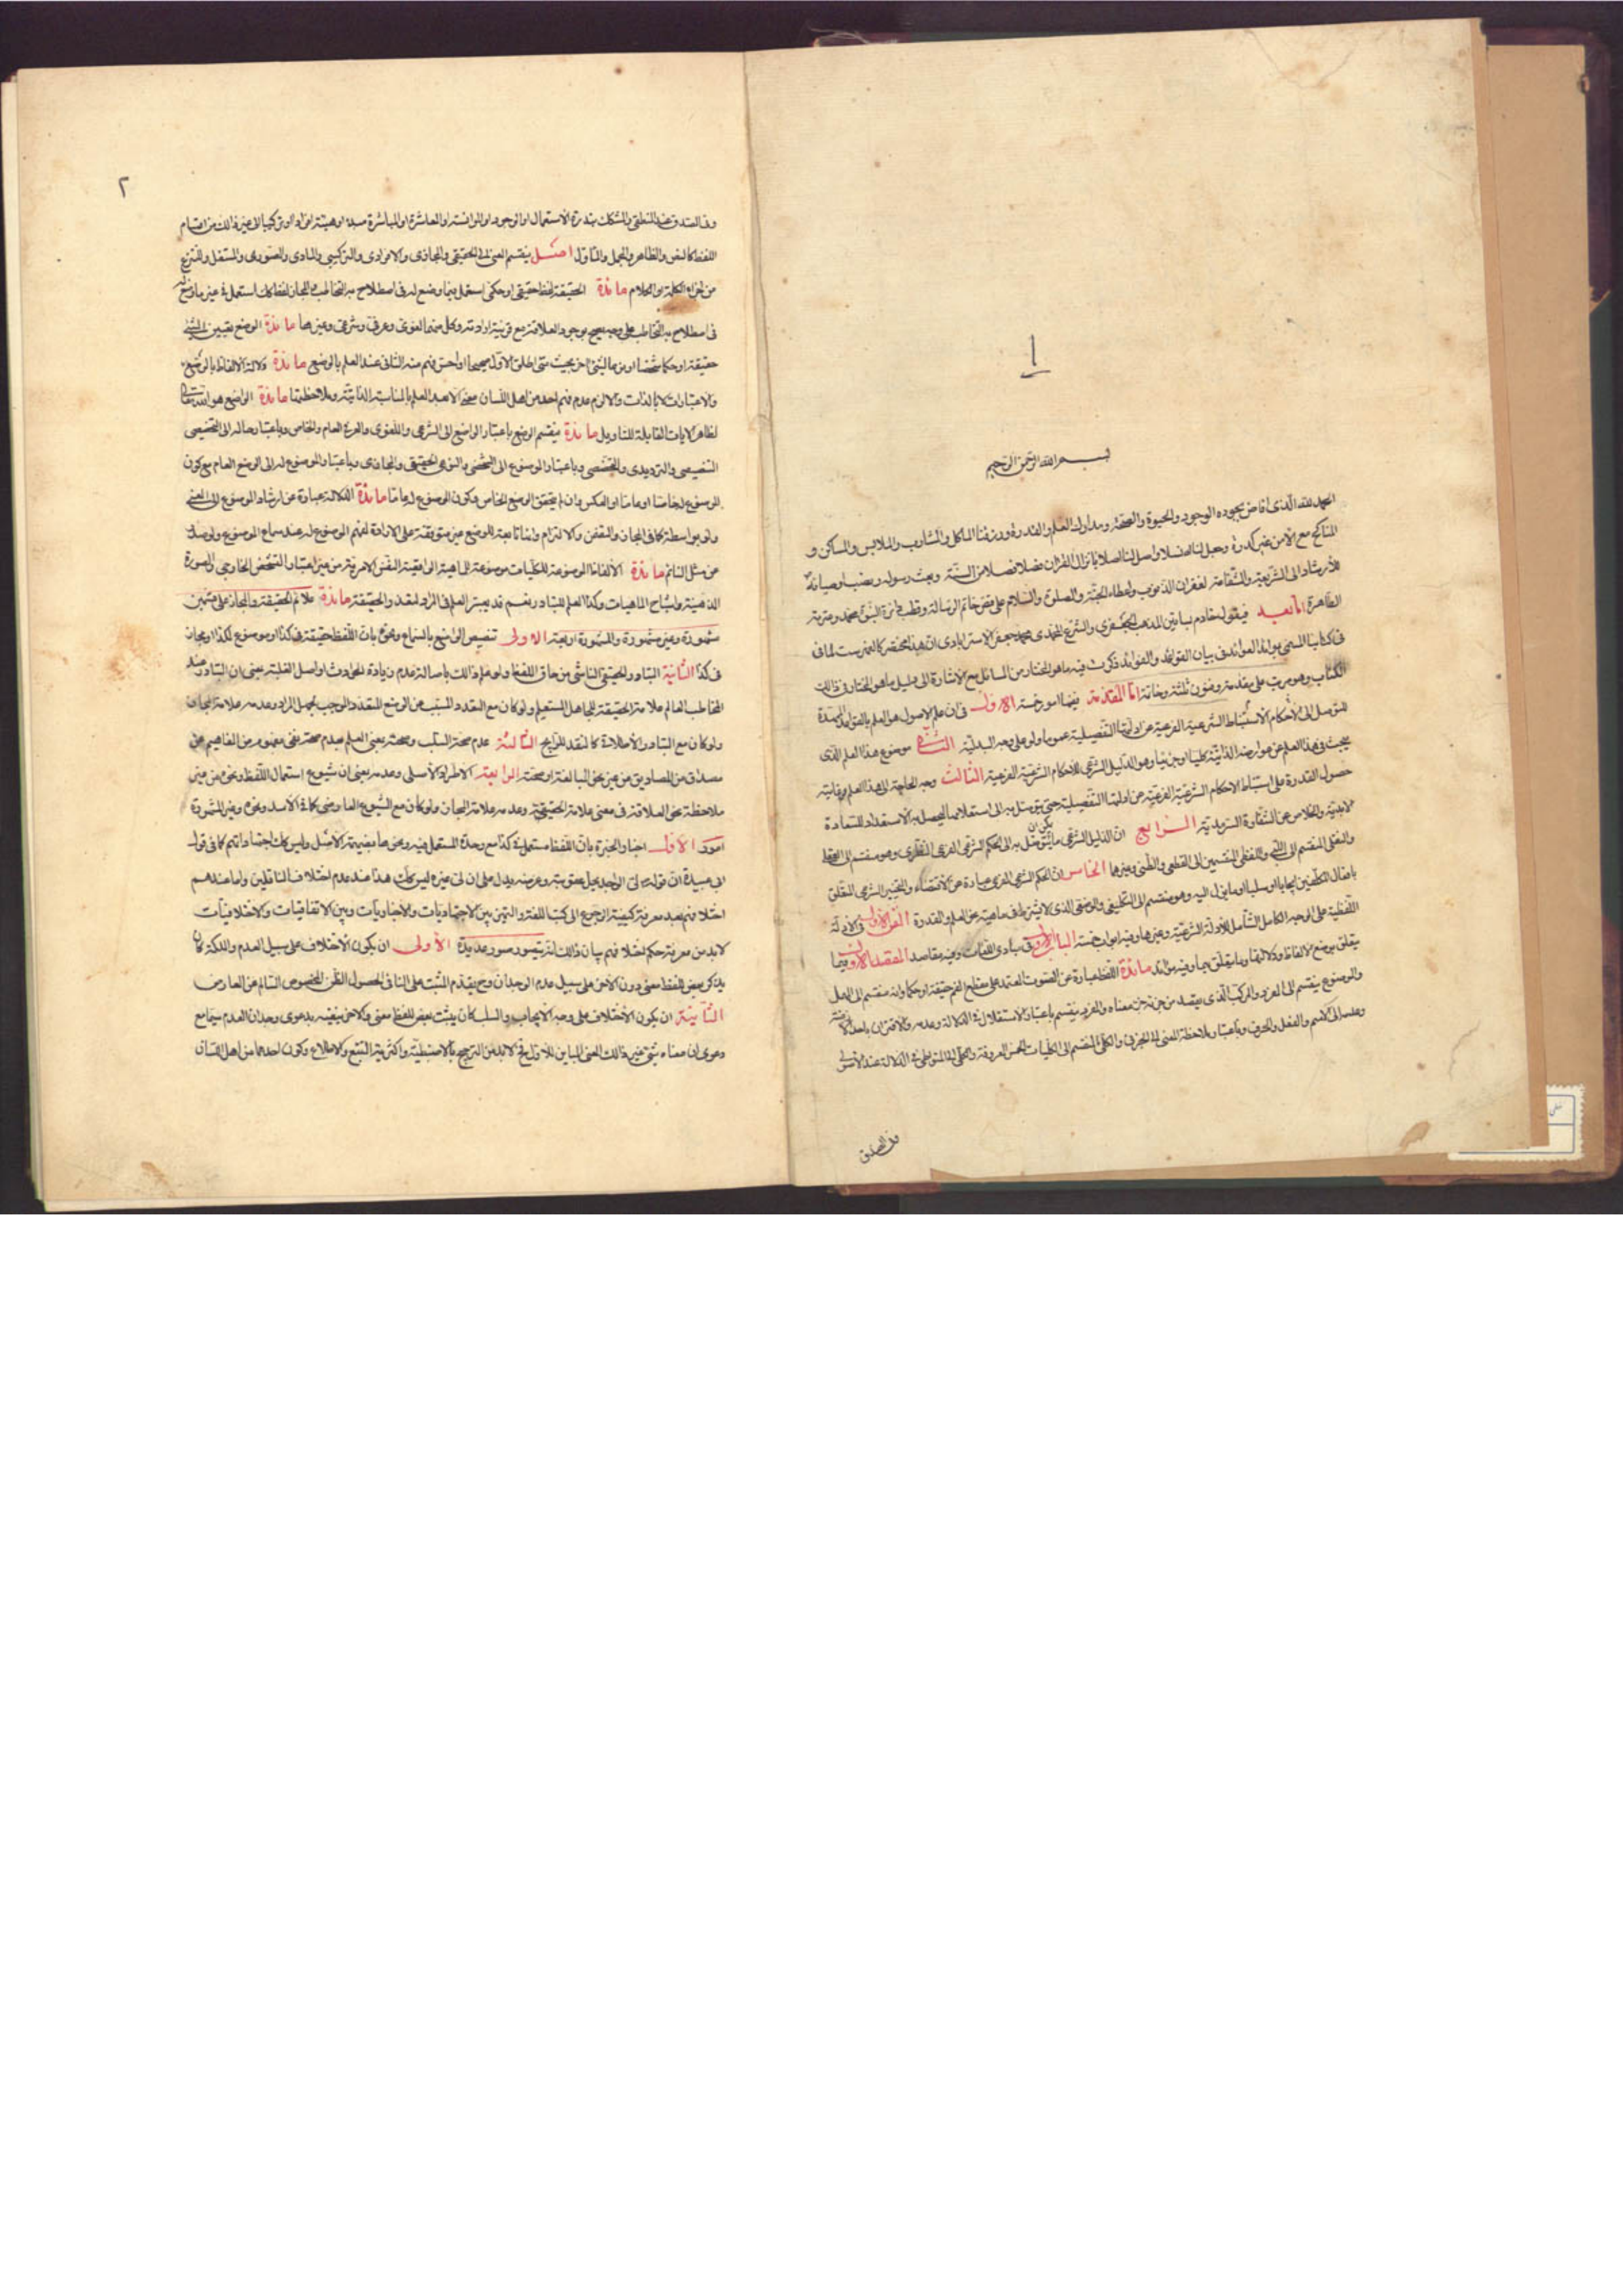 ا
بسم الله الرحمن الرحيم
الحمد لله الذى افاض بجوده الوجود والحيوة والصحة ومدارك العلم والقدرة ورزقنا المأكل والمشارب والملابس والمساكن و
المناكح مع الامن غير كدرة وجعل لنا بانزال القران فضلا من السنة وبعث رسوله
للارشاد الى الشريعة والشفاعة لغفران الذنوب ولعطاء الجنة والصلوة والسلام على فص خاتم الرسالة وقطب دائرة النبوة محمد وعترته
الطاهرة اما بعد فيقول خادم بساتين المذهب الجعفرى والشرع المحمدى محمد جعفر الاسترابادى ان هذا مختصر كالفهرست لما فى
كتابنا المسمى بموائد العوائد فى بيان القواعد والفوائد ذكرت فيه ما هو المختار من المسائل مع الاشارة الى دليل ما هو المختار فى ذلك
الكتاب وهو مرتب على مقدمة وفنون ثلثة وخاتمة اما المقدمة ففيها امور خمسة الاول فى ان علم الاصول هو العلم بالقواعد الممهدة
للتوصل الى الاحكام لاستنباط الشرعية الفرعية عن ادلتها التفصيلية عموما ولو على وجه البدلية الثانى موضوع هذا العلم الذى
يبحث فى هذا العلم عن عوارضه الذاتية كليا او جزئيا وهو الدليل الشرعى للاحكام الشرعية الفرعية الثالث وجه الحاجة الى هذا العلم وغايته
حصول القدرة على استنباط الاحكام الشرعية الفرعية عن ادلتها التفصيلية حتى يتوصل به الى ليحصل به الاستعداد للسعادة
الابدية والخلاص عن الشقاوة السرمدية الرابع ان الدليل الشرعى ما يمكن ان يتوصل به الى الحكم الشرعى الفرعى النظرى وهو منقسم الى العقلى
والنقلى المنقسم الى اللبى واللفظى المنقسمين الى القطعى والظنى وغيرهما الخامس ان الحكم الشرعى الفرعى عبارة عن الاقتضاء والتخيير الشرعى المتعلق
بافعال المكلفين ايجابا او سلبا او ما يؤل اليه وهو منقسم الى التكليفى والوضعى الذى لا يشترط فى ماهيته عن العلم والقدرة الفن الاول فى الادلة
اللفظية على الوجه الكامل الشامل للادلة الشرعية وغيرها وفيه ابواب خمسة الباب الاول فى مبادى اللغات وفيه مقاصد المقصد الاول فيما
يتعلق بوضع الالفاظ ودلالتها وما يتعلق بها وفيه موائد مائدة اللفظ عبارة عن الصوت المعتمد على مقطع الفم حقيقة او حكما وانه منقسم الى المهمل
والموضوع ينقسم الى المفرد والمركب الذى يقصد من جزئه جزء معناه والمفرد ينقسم باعتبار الاستقلال فى الدلالة وعدمه والاقتران باحد الازمنة
وعدمه الى الاسم والفعل والحرف وباعتبار ملاحظة المعنى الى الجزئى والكلى المنقسم الى الكليات الخمس المعروفة والكلى الى المتواطى فى الدلالة عند الاصولى
وفى الصدق
٢
وفى الصدق عند المنطقى والمشكك بندرة الاستعمال او الوجود او الموانسة او المعاشرة او المباشرة الى غير ذلك من اقسام
اللفظ كالنص والظاهر والمجمل والماول اصل ينقسم المعنى الى الحقيقى والمجازى والافرادى والتركيبى والمادى والصورى والمستقل والمنتزع
من اجزاء الكلمة او الكلام مائدة الحقيقة لفظ حقيقى او حكمى استعمل فيما وضع له فى اصطلاح به التخاطب والمجاز لفظ كك استعمل فى غير ما وضع له
فى اصطلاح به التخاطب على وجه صحيح بوجود العلاقة مع قرينة ارادته وكل منهما لغوى وعرفى وشرعى وغيرها مائدة الوضع تعيين الشئ
حقيقة او حكما شخصا او نوعا لشئ اخر بحيث متى اطلق الاول صحيحا او احس فهم منه الثانى عند العلم بالوضع مائدة دلالة الالفاظ بالوضع
والاعتبارات لا بالذات والا لزم عدم فهم احد من اهل اللسان معنى الا بعد العلم بالمناسبة الذاتية وملاحظتها مائدة الواضع هو الله تعالى
لظاهر الايات القابلة للتاويل مائدة ينقسم الوضع باعتبار الواضع الى الشرعى واللغوى والعرفى العام والخاص وباعتبار حاله الى التخصيصى
والترديدى والتخصصى وباعتبار الموضوع الى الشخصى والنوعى الحقيقى والمجازى وباعتبار الموضوع له الى الوضع العام مع كون
الموضوع له خاصا او عاما او العكس وان لم يتحقق الوضع الخاص وكون الموضوع له عاما مائدة الدلالة عبارة عن ارشاد الموضوع الى المعنى
ولو بواسطة كما فى المجاز والتضمن والالتزام وانها تابعة للوضع غير متوقفة على الارادة لفهم الموضوع له عند سماع الموضوع ولو صدر
عن مثل النائم مائدة الالفاظ الموضوعة للكليات موضوعة للماهية النفس الامرية من غير اعتبار التشخص الخارجى والصورة
الذهنية واشباح الماهيات وكذا العلم للتبادر نعم قد يعتبر العلم فى المراد مائدة علائم الحقيقة والمجاز على قسمين
مشهورة وغير مشهورة والمشهورة اربعة الاولى تنصيص الواضع بالسماع ونحوه بان اللفظ حقيقة فى كذا او موضوع لكذا او مجاز
فى كذا الثانية التبادر الحقيقى الناشى من حاق اللفظ ولو علم ذلك باصالة عدم زيادة الحوادث واصل الغلبة بمعنى ان التبادر عند
المخاطب العالم علامة الحقيقة للجاهل المستعلم ولو كان مع التعدد المسبب عن الوضع المتعدد الموجب لجهل المراد وعدمه علامة المجاز
ولو كان مع التبادر الاطلاقى الثالثة عدم صحة السلب وصحته بمعنى العلم بعدم صحة نفى مفهوم من المفاهيم عن
مصداق من المصاديق من غير نحو المبالغة او صحته الرابعة الاطراد الاصلى وعدمه بمعنى ان شيوع استعمال اللفظ ونحوه من غير
ملاحظة نحو العلاقة فى معنى علامة الحقيقة وعدمه علامة المجاز ولو كان مع الشيوع العارضى كما فى الاسد ونحوه وغير المشهورة
امور الاول اخبار الخبرة بان اللفظ مستعمل فى كذا مع وحدة المستعمل فيه ونحوها بضميمة الاصل وليس كك اجتهاداتهم كما فى قول
ابى عبيدة ان قوله لى الواجد يحل عقوبته وعرضه يدل على ان لى غيره ليس كك هذا عند عدم اختلاف الناقلين واما عند
اختلافهم بعد معرفة كيفية الرجوع الى كتب اللغة والتميز بين الاجتهاديات والاخباريات وبين الاتفاقيات والاختلافيات
لابد من معرفة حكم اختلافهم بيان ذلك انه يتصور صور عديدة الاولى ان يكون الاختلاف على سبيل العدم والملكة كان
يذكر بعض للفظ معنى دون الاخر على سبيل عدم الوجدان وح يقدم المثبت على النافى لحصول الظن المخصوص السالم عن المعارض
الثانية ان يكون الاختلاف على وجه الايجاب والسلب كان يثبت بعض للفظ معنى والاخر ينفيه بدعوى وجدان العدم سيما مع
دعوى ان معناه شئ غير ذلك المعنى المباين للاول فح لابد من الترجيح بالاضبطية واكثرية التتبع والاطلاع وكون احدهما من اهل اللسان